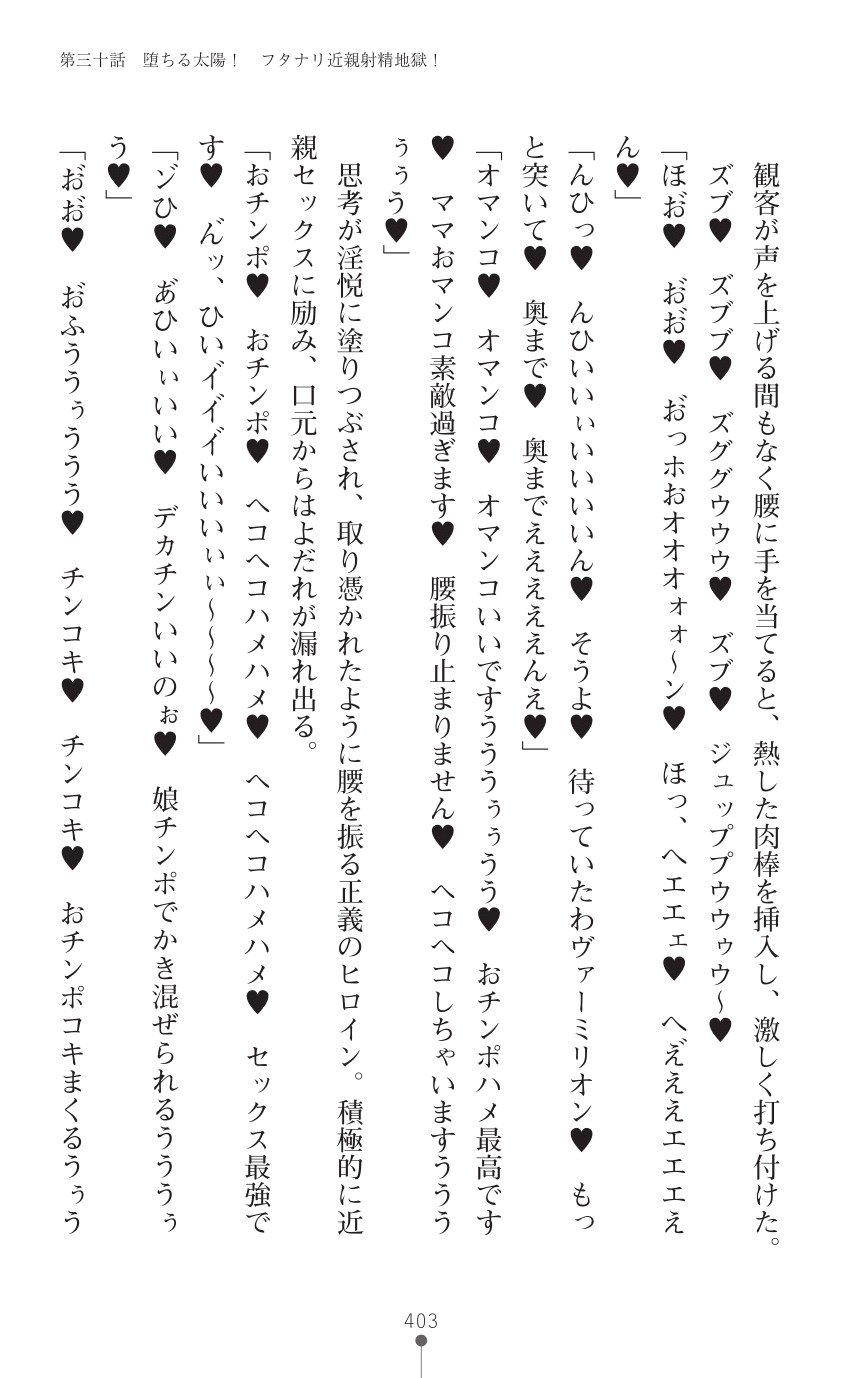 第三十話　堕ちる太陽！　フタナリ近親射精地獄！
観客が声を上げる間もなく腰に手を当てると、熱した肉棒を挿入し、激しく打ち付けた。
ズブ♥　ズブブ♥　ズググウウウ♥　ズブ♥　ジュッププウウゥウ～♥
「ほお゛♥　お゛お゛♥　お゛っホおオオオォォ～ン♥　ほっ、へエエェ♥　へえ゛ええエエエぇ
ん♥」
「んひっ♥　んひいいぃいいいいん♥　そうよ♥　待っていたわヴァーミリオン♥　もっ
と突いて♥　奥まで♥　奥までええええええんえ♥」
「オマンコ♥　オマンコ♥　オマンコいいですうううぅぅうう♥　おチンポハメ最高です
♥　ママおマンコ素敵過ぎます♥　腰振り止まりません♥　ヘコヘコしちゃいますううう
ぅぅう♥」
思考が淫悦に塗りつぶされ、取り憑かれたように腰を振る正義のヒロイン。積極的に近
親セックスに励み、口元からはよだれが漏れ出る。
「おチンポ♥　おチンポ♥　ヘコヘコハメハメ♥　ヘコヘコハメハメ♥　セックス最強で
す♥　ん゛ッ、ひいイ゛イ゛イ゛いいいぃぃ～～～～♥」
「ゾひ♥　あ゛ひいぃいい♥　デカチンいいのぉ♥　娘チンポでかき混ぜられるうううぅ
う♥」
「お゛お゛♥　お゛ふううぅううう♥　チンコキ♥　チンコキ♥　おチンポコキまくるうぅう
403